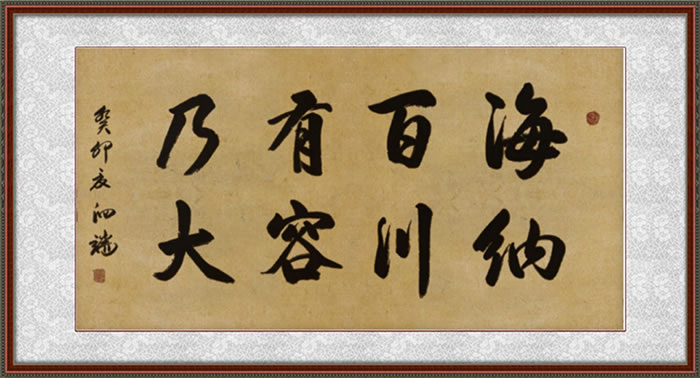 海纳
百川
有容
乃大
癸卯夏泗端